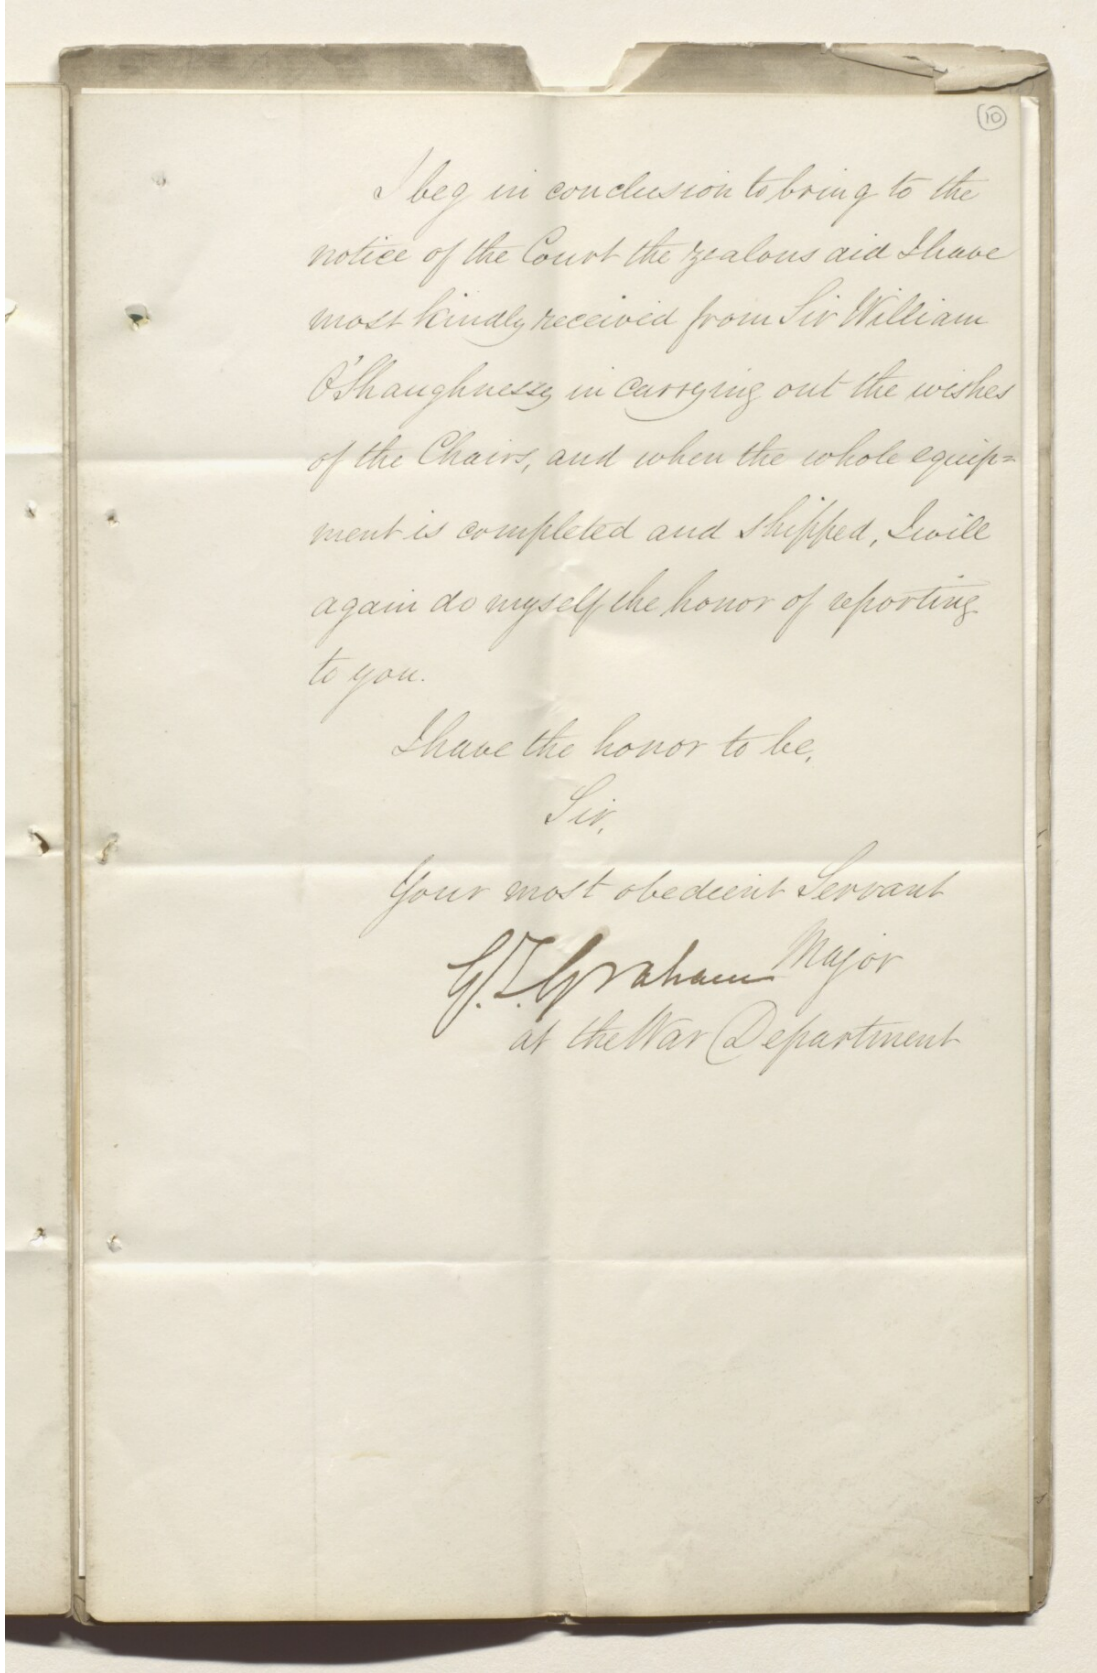 10
I beg in conclusion to bring to the
notice of the Court the zealous aid I have
most kindly received from Sir William
O'Shaughnessy in carrying out the wishes
of the Chairs, and when the whole equip=
ment is completed and shipped, I will
again do myself the honor of reporting
to you.
I have the honor to be,
Sir,
Your most obedient Servant
G. T. Graham Major
at the War Department